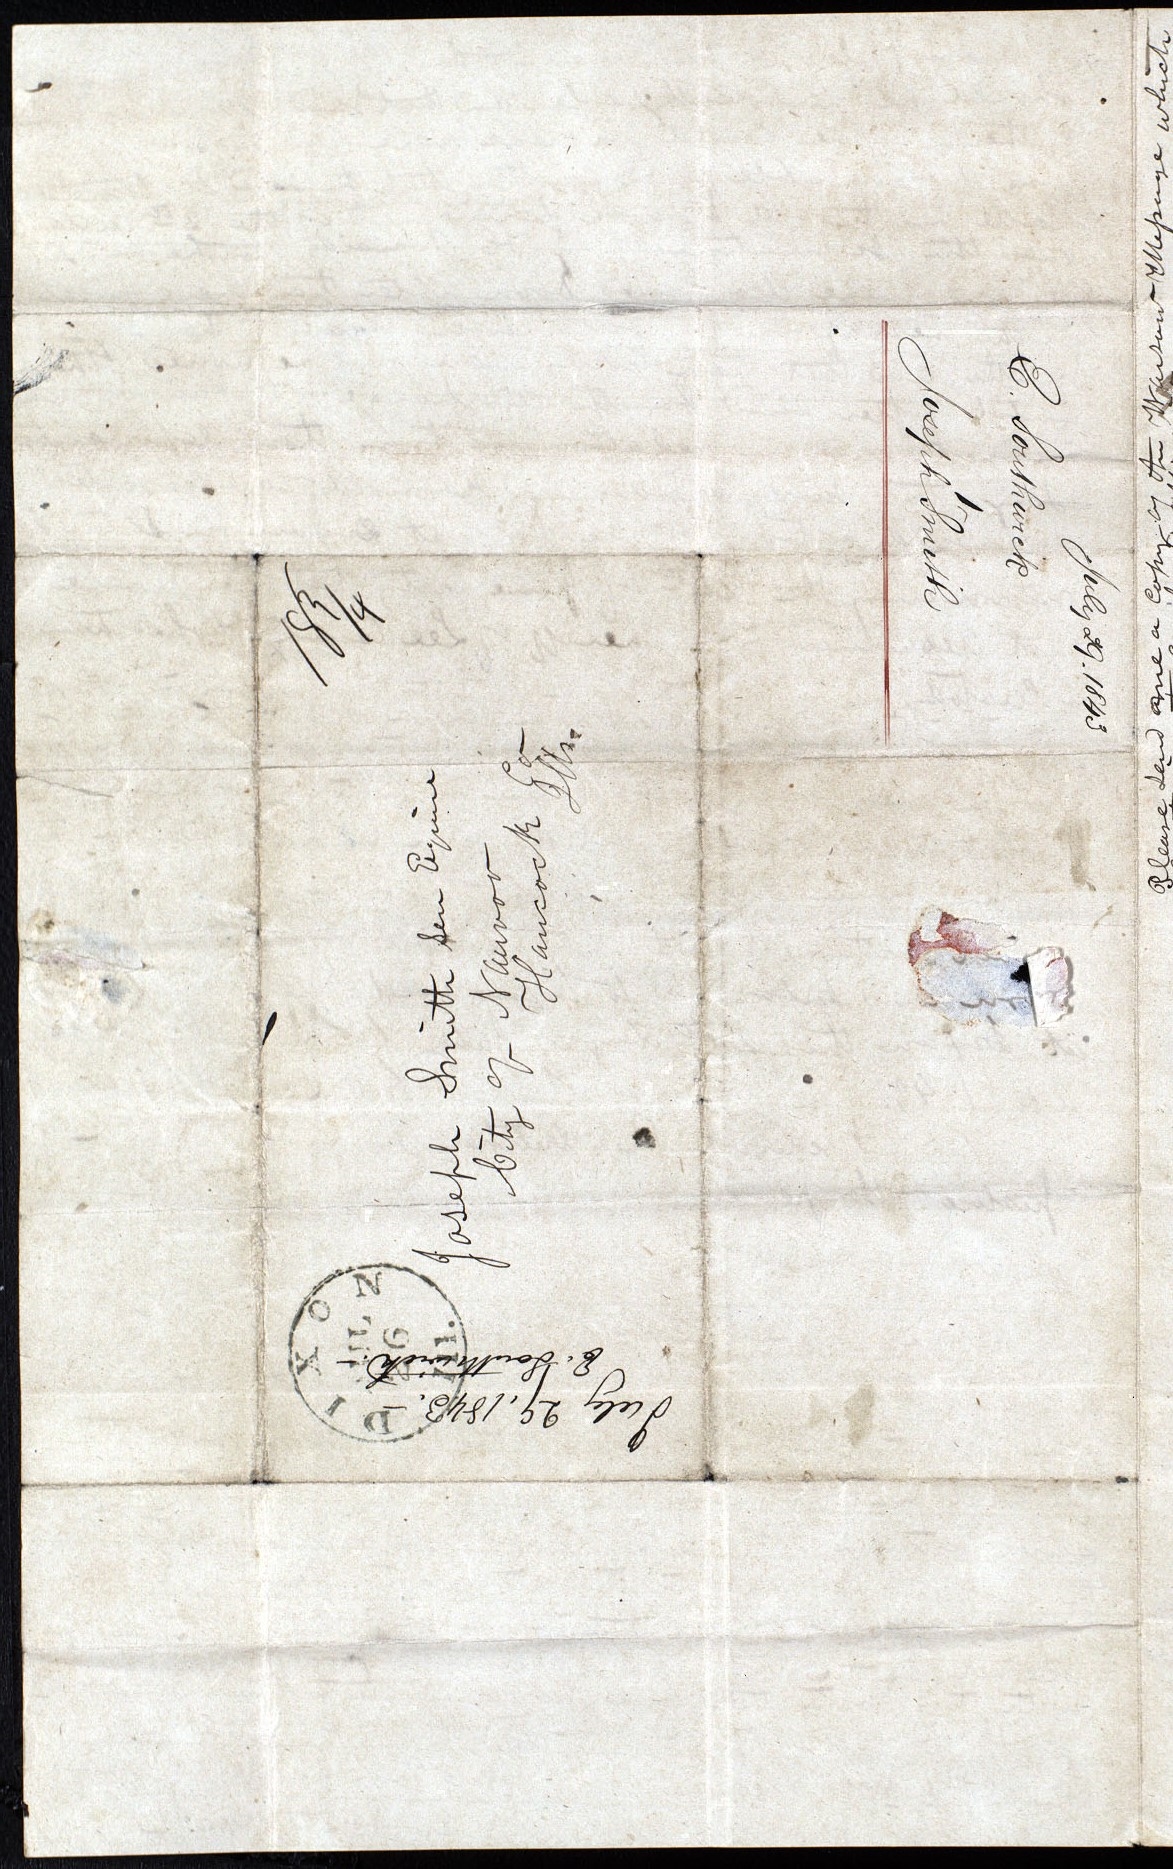 Joseph Smith sen Esquire
City of Nauvoo
Hancock Co
Ills.
18 3/4
DIXON
JUL
26
Ill.
July 29, 1843.
E. Southwick
July 29. 1843
E. Southwick
Joseph Smith
Please send me a copy of the Warsaw Message which